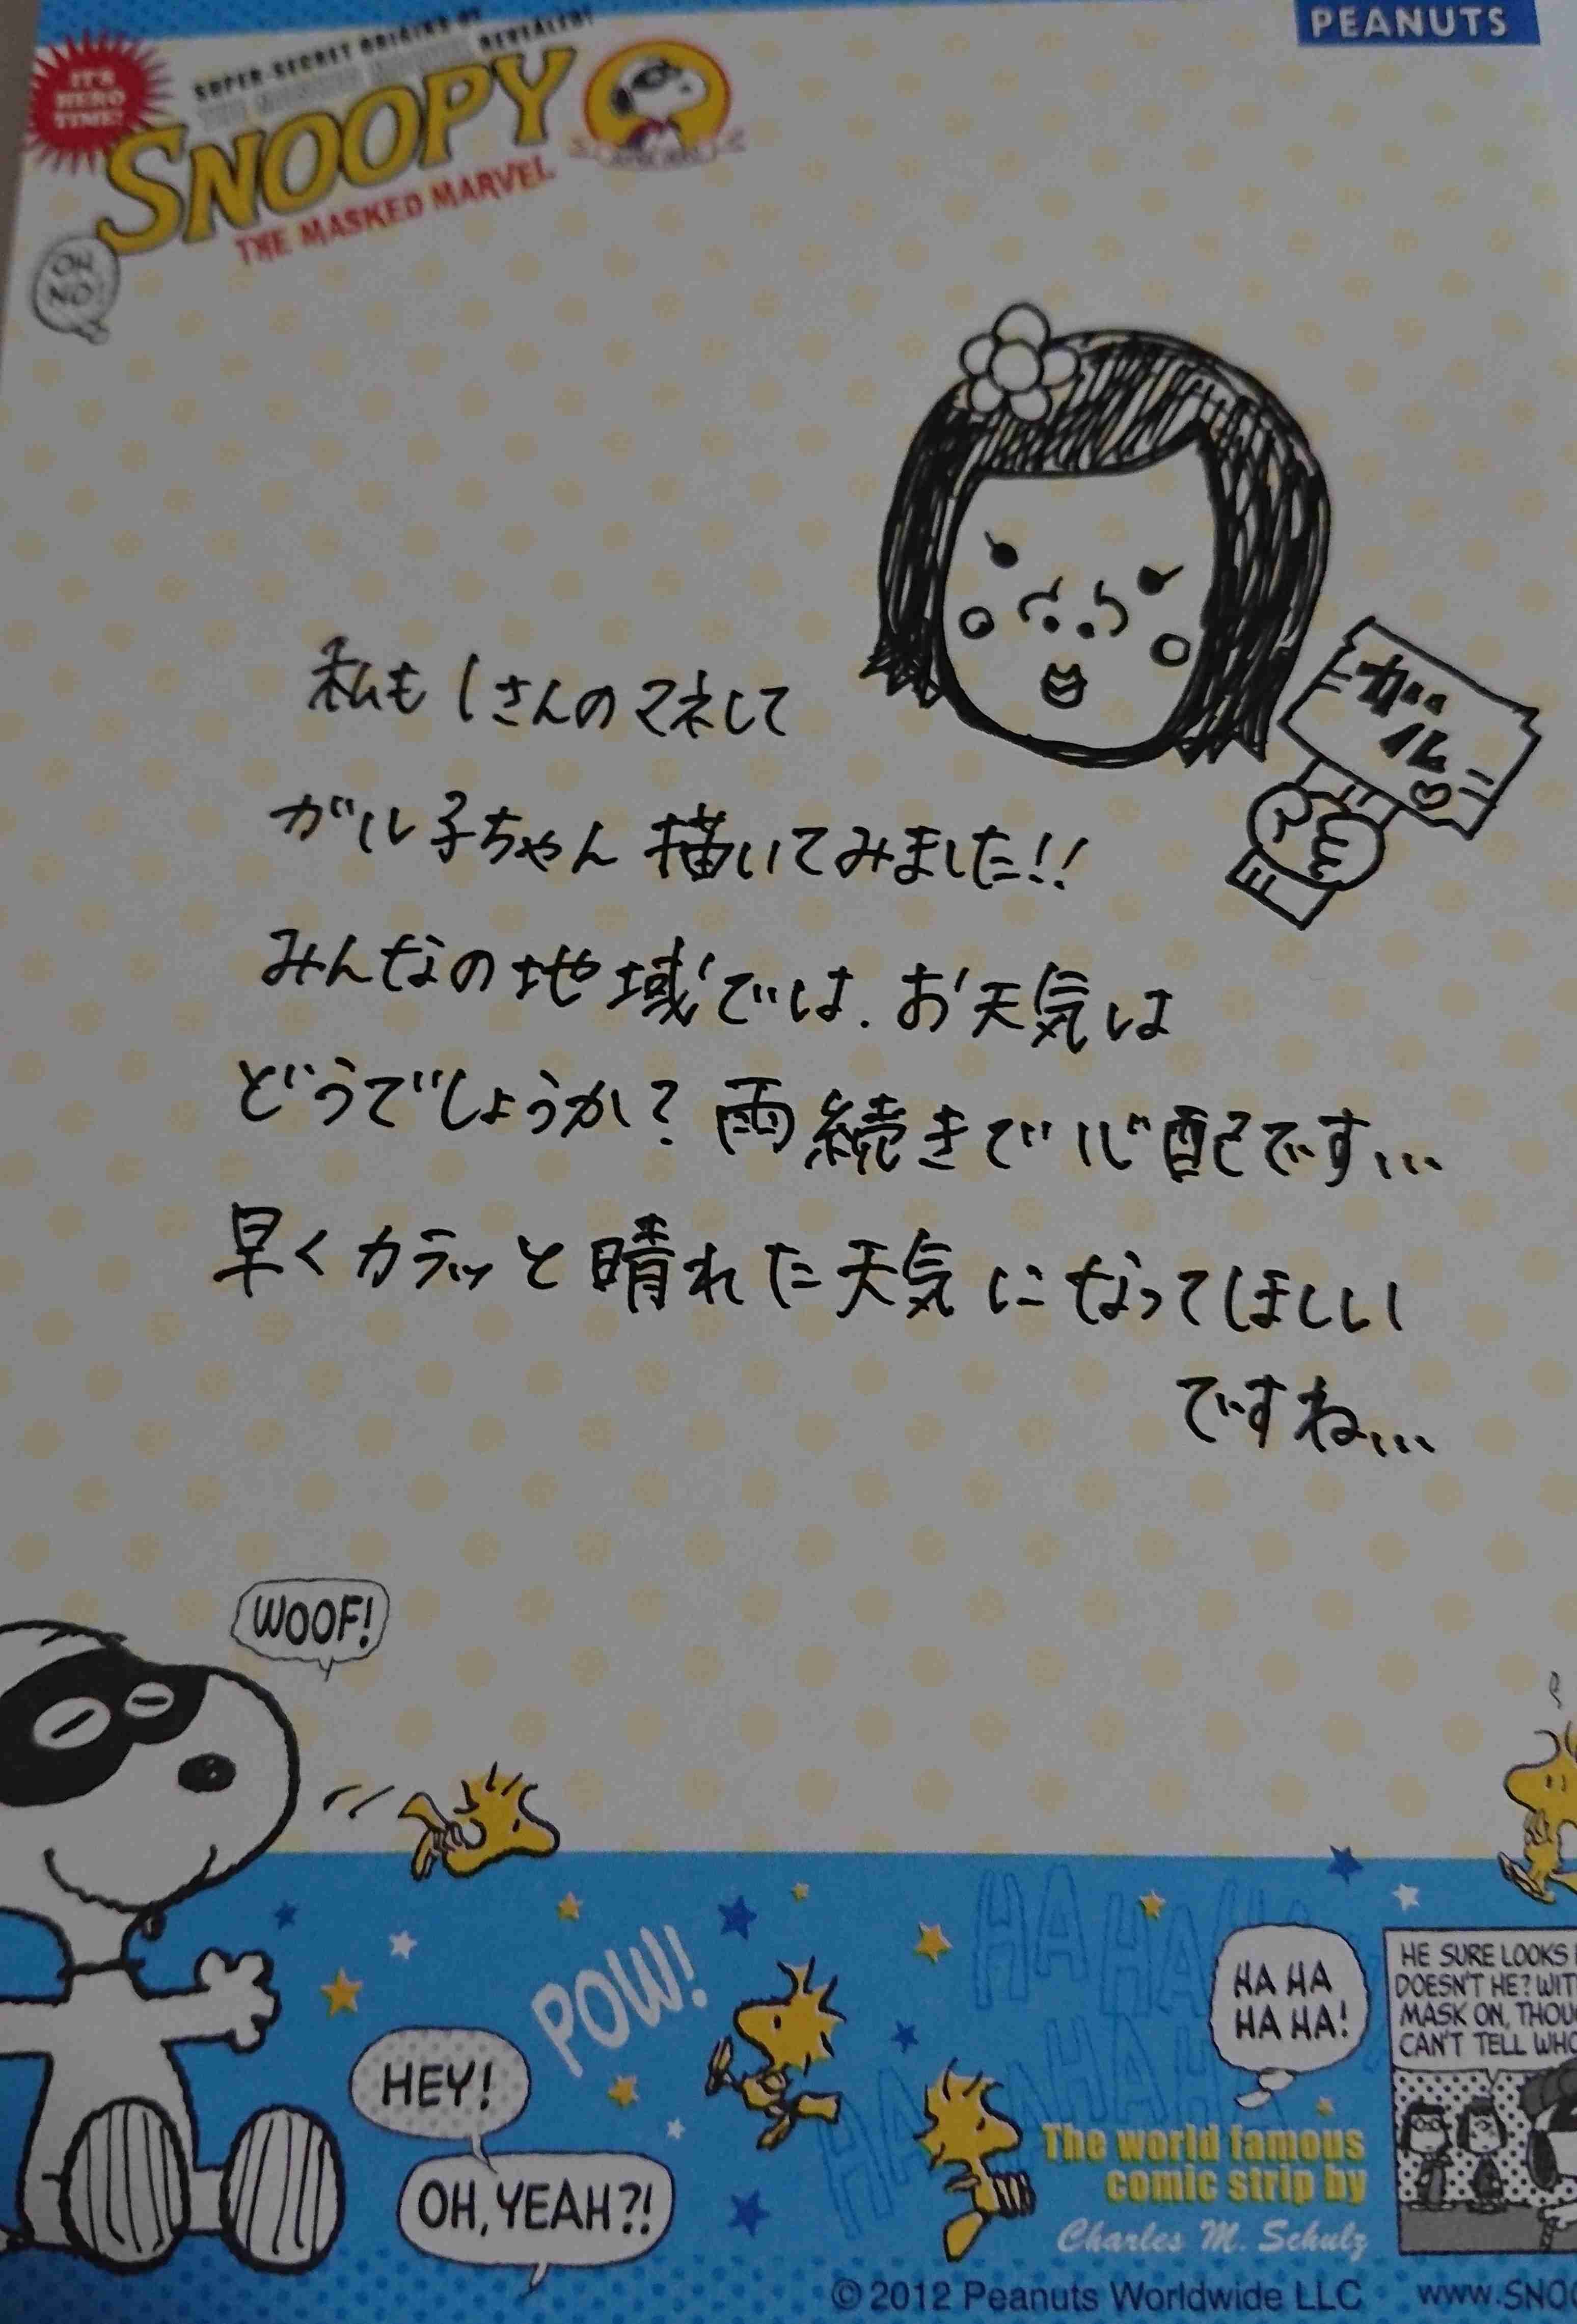 PEANUTS
IT'S
HERO
TIME!
SUPER-SECRET ORIGINS OF
REVEALED!
SNOOPY
THE MASKED MARVEL
OH
NO!
私も しさんのマネして
ガル子ちゃん 描いてみました!!
ガル♡
みんなの地域では、お天気は
どうでしょうか? 雨続きで心配です...
早くカラッと晴れた天気になってほしい
ですね...
WOOF!
POW!
HA HA HA
HAHAHAHA
HA HA
HA HA!
HE SURE LOOKS
DOESN'T HE? WIT
MASK ON, THOU
CAN'T TELL WHO
HEY!
OH, YEAH?!
The world famous
comic strip by
Charles M. Schulz
© 2012 Peanuts Worldwide LLC www.SNOO